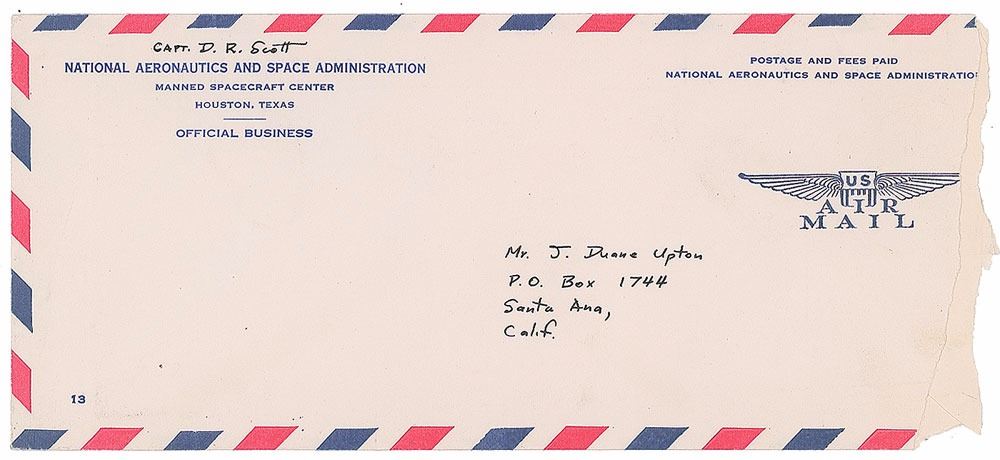 CAPT. D. R. Scott
NATIONAL AERONAUTICS AND SPACE ADMINISTRATION
MANNED SPACECRAFT CENTER
HOUSTON, TEXAS
OFFICIAL BUSINESS
POSTAGE AND FEES PAID
NATIONAL AERONAUTICS AND SPACE ADMINISTRATIO
US
AIR
MAIL
Mr. J. Duane Upton
P.O. Box 1744
Santa Ana,
Calif.
13